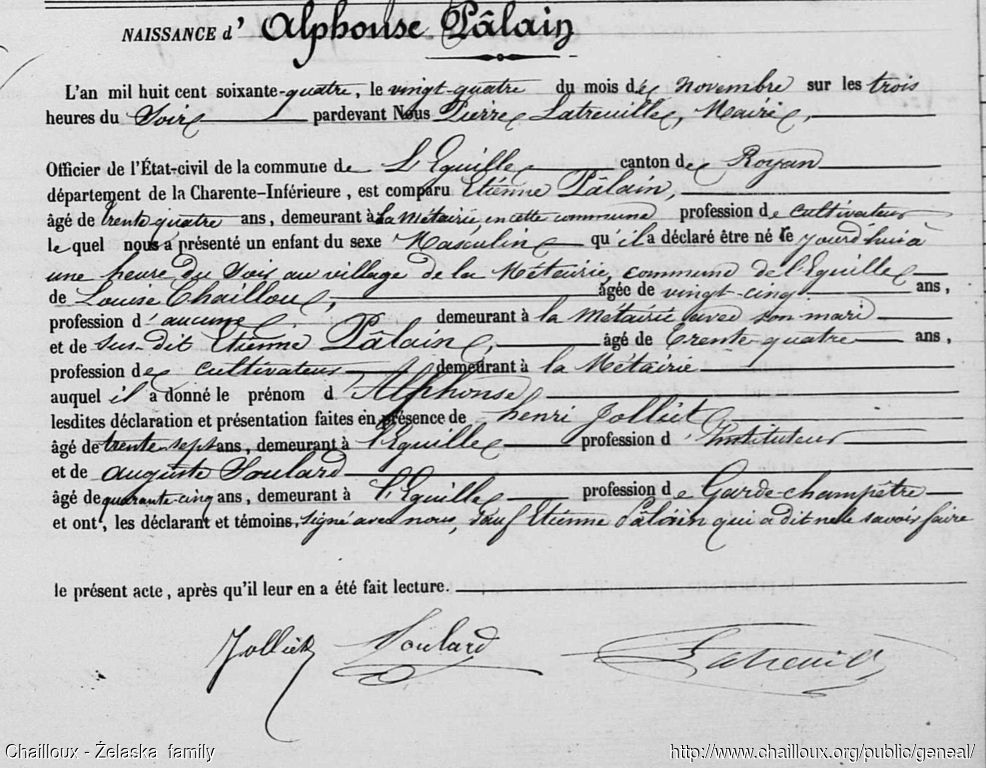 NAISSANCE d' Alphonse Pâlain
L'an mil huit cent soixante-quatre, le vingt-quatre du mois de Novembre sur les trois
heures du Soir pardevant Nous Pierre Latreuille, Maire,
Officier de l'État-civil de la commune de L'Eguille canton de Royan
département de la Charente-Inférieure, est comparu Etienne Pâlain,
âgé de trente quatre ans, demeurant à la Métairie, en cette commune profession de cultivateur
le quel nous a présenté un enfant du sexe Masculin qu'il a déclaré être né le jourd'hui à
une heure du Soir au village de la Métairie, commune de l'Eguille
de Louise Chailloux, âgée de vingt-cinq ans,
profession d'aucune demeurant à la Métairie avec son mari
et de sus-dit Etienne Pâlain, âgé de trente quatre ans,
profession de cultivateur demeurant à la Métairie
auquel il a donné le prénom d'Alphonse
lesdites déclaration et présentation faites en présence de henri Jolliet
âgé de trente sept ans, demeurant à l'Eguille profession d'Instituteur
et de auguste Soulard
âgé de quarante-cinq ans, demeurant à l'Eguille profession de Garde-champêtre
et ont, les déclarant et témoins, signé avec nous, sauf Etienne Pâlain qui a dit ne le savoir faire
le présent acte, après qu'il leur en a été fait lecture.
Jolliet Soulard Latreuille
Chailloux - Želaska family http://www.chailloux.org/public/geneal/